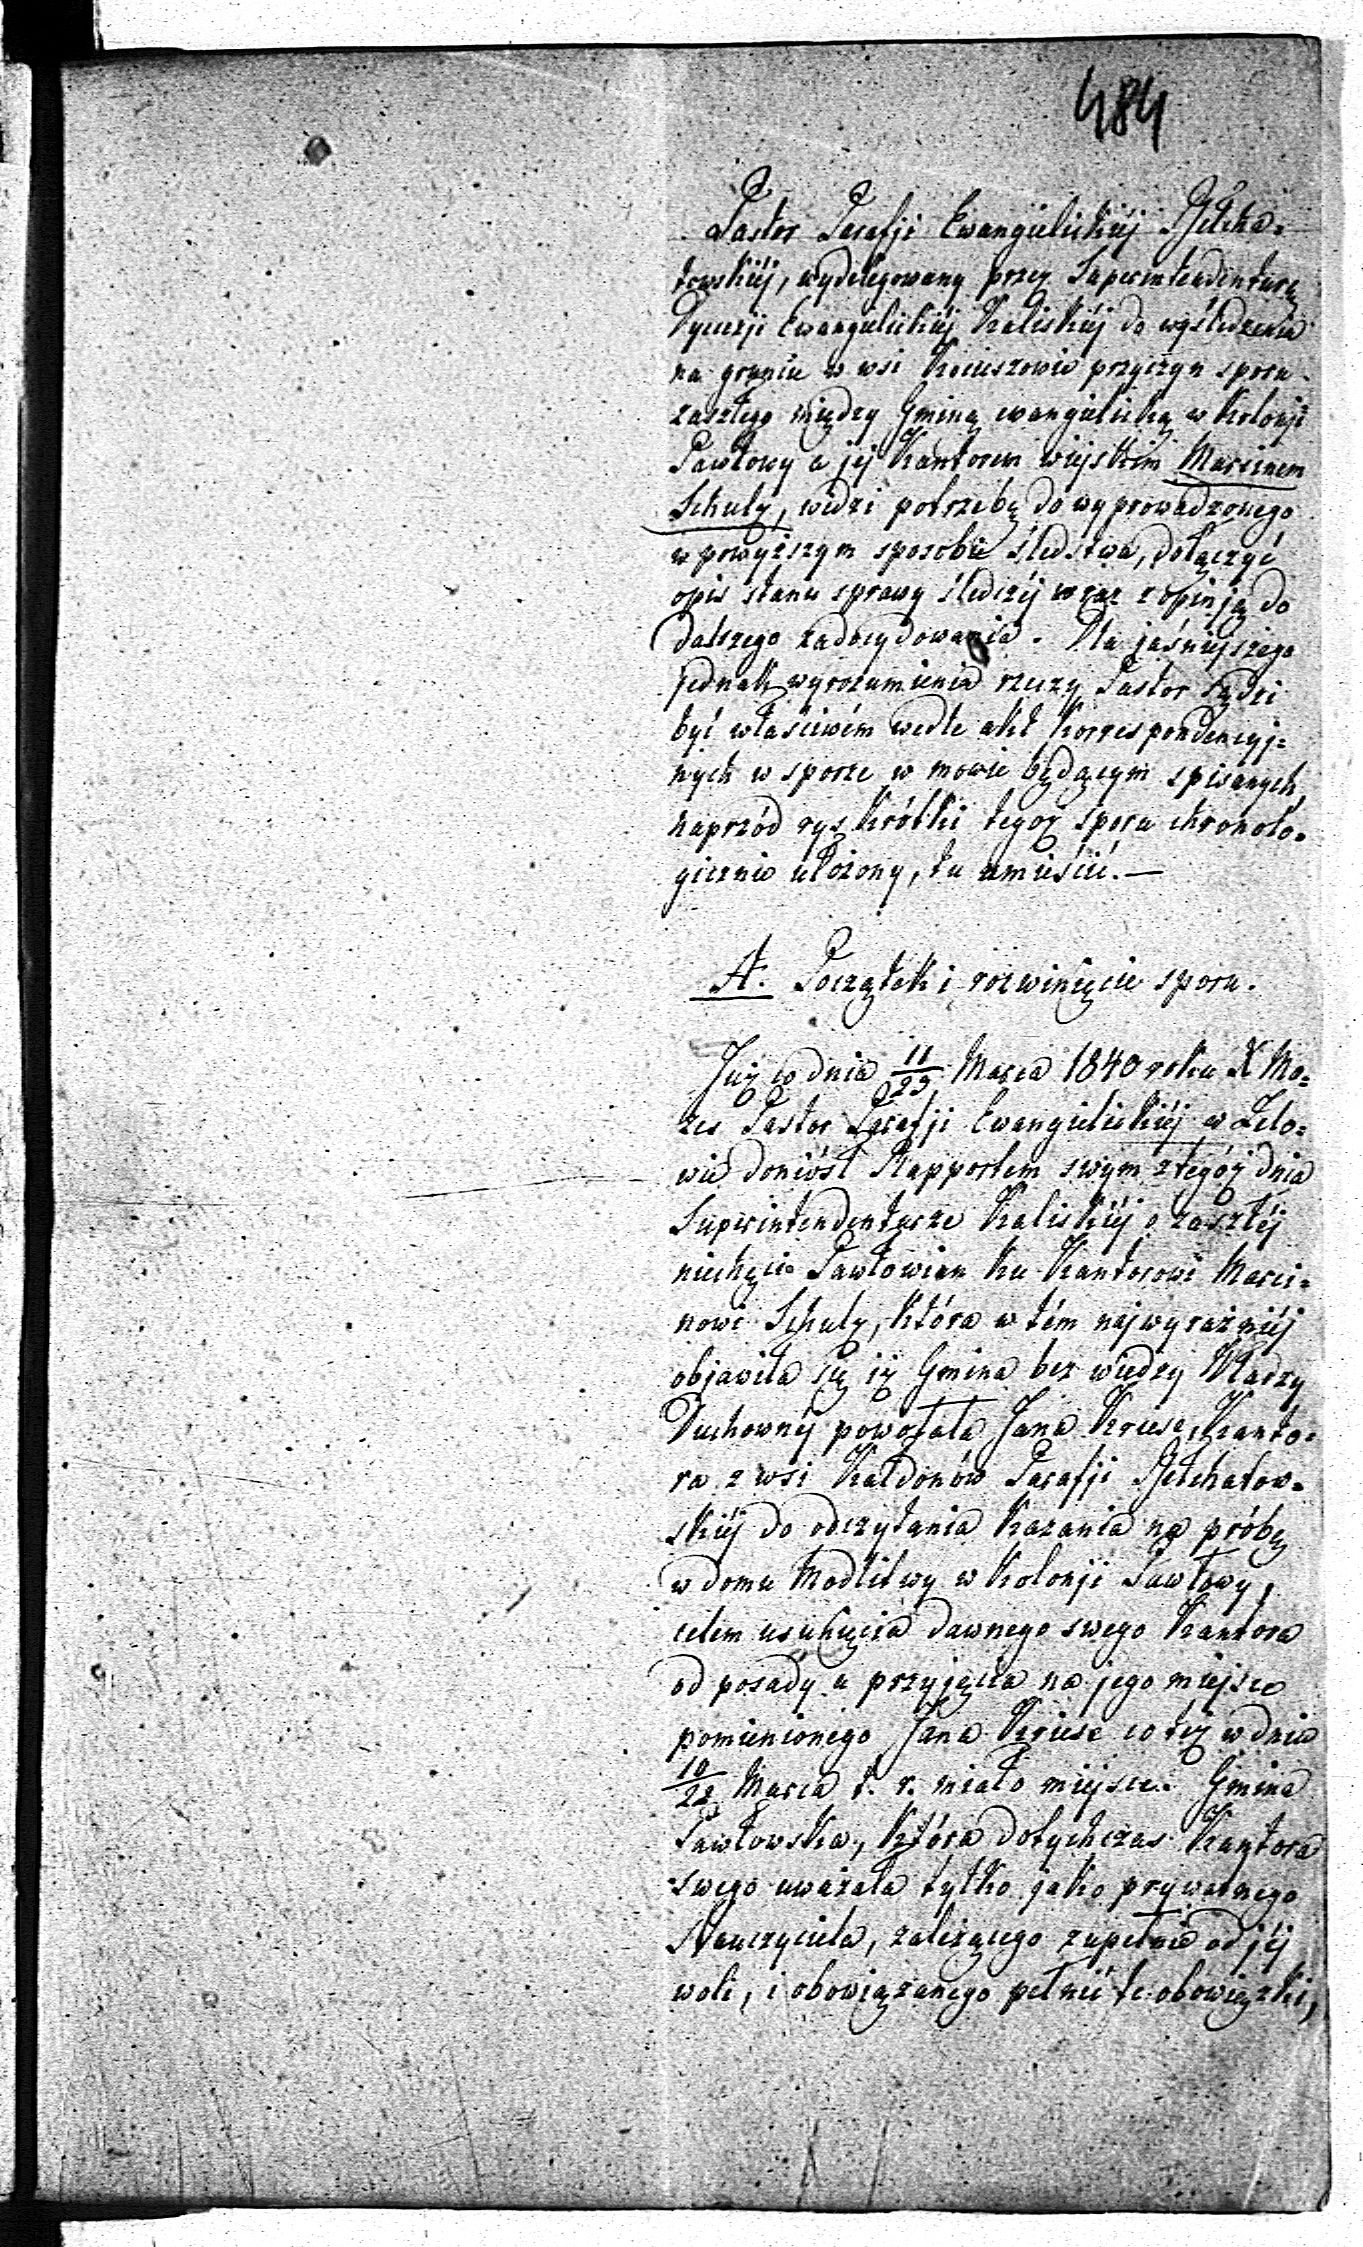 484
Pastor Parafji Ewangielickiéj Bełcha=
towskiéj, wydelegowany przez Superintendenturę
Dyecezji Ewangielickiéj Kaliskiéj do wyśledzenia
na gruncie w wsi Kociszowie przyczyn sporu
zaszłego między Gminą ewangielicką w Kolonji
Pawłowy a jej Kantorem wiejskim Marcinem
Schulz, widzi potrzebę do wyprowadzonego
w powyższym sposobie śledstwa, dołączyć
opis stanu sprawy śledczéj wraz z opinją do
dalszego zadecydowania. Dla jaśniejszego
jednak wyrozumienia rzeczy Pastor sądzi
być właściwém wedle akt Korrespondencyj=
nych w sporze w mowie będącym spisanych,
naprzód rys krótki tegoż sporu chronolo=
gicznie ułożony, tu umieścić. —
A. Początek i rozwinięcie sporu.
Już w dniu 11/23 Marca 1840 roku X Mo=
zes Pastor Parafji Ewangielickiéj w Zelo=
wie doniósł Rapportem swym z tegóż dnia
Superintendenturze Kaliskiéj o zaszłéj
niechęci Pawłowian ku Kantorowi Marci=
nowi Schulz, która w tém najwyraźniéj
objawiła się iż Gmina bez wiedzy Władzy
Duchownéj powołała Jana Kriese, Kanto=
ra z wsi Kałdonów Parafji Bełchatow=
skiéj do odczytania Kazania na próbę
w domu Modlitwy w Kolonji Pawłowy,
celem usunięcia dawnego swego Kantora
od posady a przyjęcia na jego miejsce
pomienionego Jana Kriese co też w dniu
10/22 Marca t. r. miało miejsce. Gmina
Pawłowska, która dotychczas Kantora
swego uważała tylko jako prywatnego
Nauczyciela, zależącego zupełnie od jéj
woli, i obowiązanego pełnić te obowiązki,